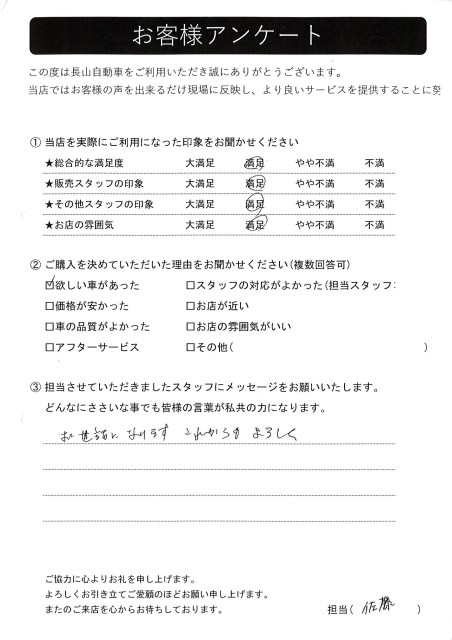 お客様アンケート
この度は長山自動車をご利用いただき誠にありがとうございます。
当店ではお客様の声を出来るだけ現場に反映し、より良いサービスを提供することに努
① 当店を実際にご利用になった印象をお聞かせください
★総合的な満足度 大満足 満足 やや不満 不満
★販売スタッフの印象 大満足 満足 やや不満 不満
★その他スタッフの印象 大満足 満足 やや不満 不満
★お店の雰囲気 大満足 満足 やや不満 不満
② ご購入を決めていただいた理由をお聞かせください(複数回答可)
☑欲しい車があった □スタッフの対応がよかった(担当スタッフ:
□価格が安かった □お店が近い
□車の品質がよかった □お店の雰囲気がいい
□アフターサービス □その他( )
③ 担当させていただきましたスタッフにメッセージをお願いいたします。
どんなにささいな事でも皆様の言葉が私共の力になります。
お世話になります これからもよろしく
ご協力に心よりお礼を申し上げます。
よろしくお引き立てご愛顧のほどお願い申し上げます。
またのご来店を心からお待ちしております。
担当( 佐藤 )